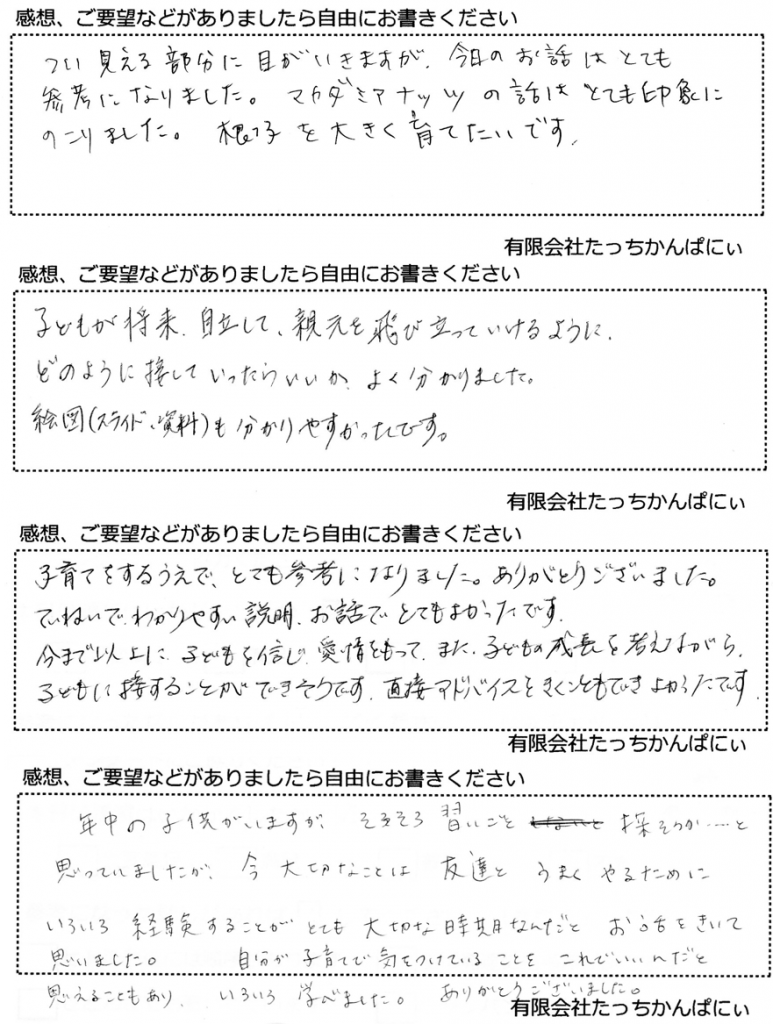 感想、ご要望などがありましたら自由にお書きください
つい見える部分に目がいきますが、今日のお話はとても
参考になりました。マカダミアナッツの話はとても印象に
のこりました。根っ子を大きく育てたいです。
有限会社たっちかんぱにぃ
感想、ご要望などがありましたら自由にお書きください
子どもが将来、自立して、親元を飛び立っていけるように、
どのように接していったらいいか、よく分かりました。
絵図(スライド、資料)も分かりやすかったです。
有限会社たっちかんぱにぃ
感想、ご要望などがありましたら自由にお書きください
子育てをするうえで、とても参考になりました。ありがとうございました。
ていねいで、わかりやすい説明、お話でとてもよかったです。
今まで以上に、子どもを信じ、愛情をもって、また、子どもの成長を考えながら、
子どもに接することができそうです。直接アドバイスをきくこともできよかったです。
有限会社たっちかんぱにぃ
感想、ご要望などがありましたら自由にお書きください
年中の子供がいますが、そろそろ習いごと 探そうか……と
思っていましたが、今大切なことは友達とうまくやるために
いろいろ経験することがとても大切な時期なんだとお話をきいて
思いました。自分が子育てで気をつけていることをこれでいいんだと
思えることもあり、いろいろ学べました。ありがとうございました。
有限会社たっちかんぱにぃ